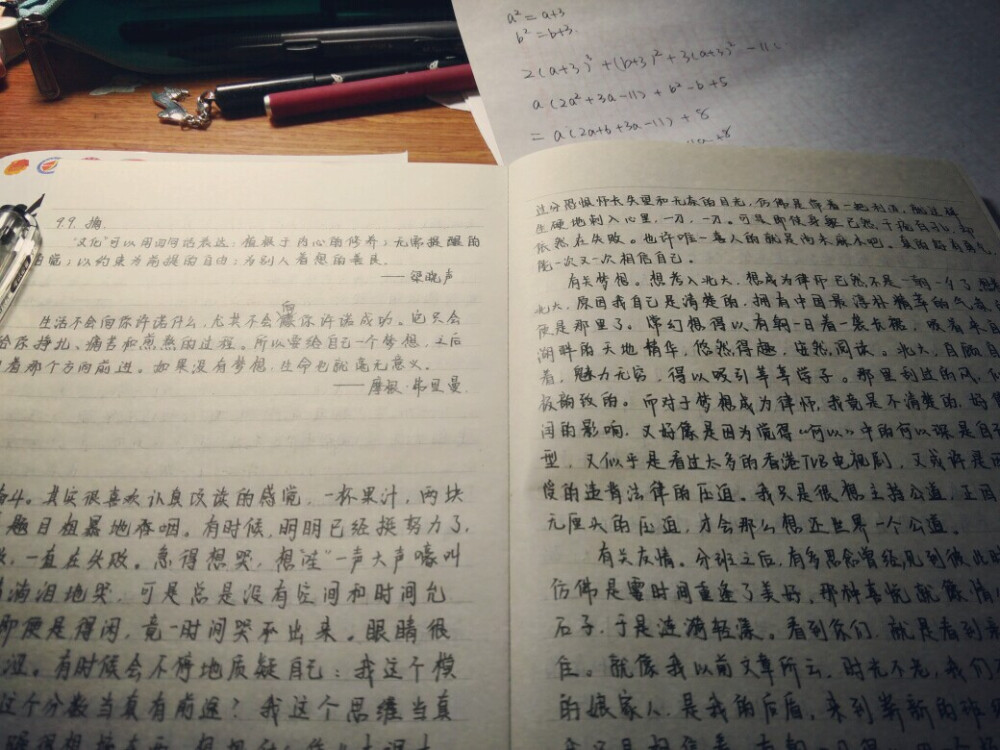 a² = a+3
b² = b+3.
2(a+3)³ + (b+3)² + 3(a+3)² - 11
a(2a²+3a-11) + b²-b+5
= a(2a+6+3a-11) + 8
9.9. 摘.
"文化"可以用四句话表达:植根于内心的修养;无需提醒的
自觉;以约束为前提的自由;为别人着想的善良.
——梁晓声
生活不会向你许诺什么,尤其不会向你许诺成功。它只会
给你挣扎、痛苦和煎熬的过程。所以要给自己一个梦想,之后
着那个方向前进。如果没有梦想,生命也就毫无意义.
——摩根·弗里曼.
奋斗。其实很喜欢认真攻读的感觉,一杯果汁,两块
题目粗暴地吞咽。有时候,明明已经挺努力了,
一直在失败。急得想哭,想"哇"一声大声嚎叫
泪地哭,可是总是没有空间和时间允
即便是得闲,竟一时间哭不出来。眼睛很
湿。有时候会不停地质疑自己:我这个模
这个分数当真有前途?我这个思维当真
过分恐惧怀
失望和无
的目光,仿佛是
一把利
生硬地刺入心里,一刀,一刀。可是即使身躯已然千疮百孔,却
依然在失败。也许唯一喜人的就是尚未麻木吧。真的好有勇气,
能一次又一次相信自己。
有关梦想。想考入北大,想成为律师已然不是一朝一夕了.
北大,原因我自己是清楚的,拥有中国最
精萃的气
便是那里了。常幻想得以有朝一日着一袭长裙,
湖畔的天地精华,悠然得趣,安然阅读。北大,自顾自
着,魅力无穷,得以吸引莘莘学子。那里刮过的风,
极韵致的。而对于梦想成为律师,我竟是不清楚的,好像
闻的影响,又好像是因为觉得《何以》中的何以琛是自己
型,又似乎是看过太多的香港TVB电视剧,又或许是
役的违背法律的压迫。我只是很想主持公道,正因
无厘头的压迫,才会那么想还世界一个公道。
有关友情。分班之后,有多思念曾经,见到彼此时
仿佛是霎时间重逢了美好,那种喜悦就像
石子,于是涟漪轻漾。看到你们,就是看到
住。就像我以前文章所云,时光不老,我们
的娘家人,是我的后盾。来到崭新的班